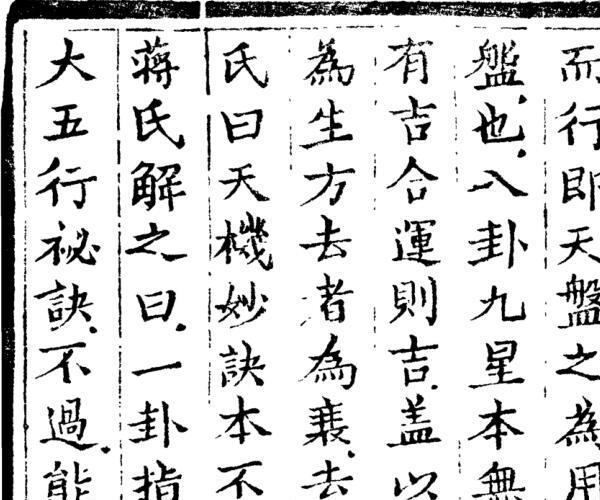 而行即天盤之為用
盤也八卦九星本無
有吉合運則吉蓋以
為生方去者為衰去
氏曰天機妙訣本不
蔣氏解之曰一卦指
大五行祕訣不過能